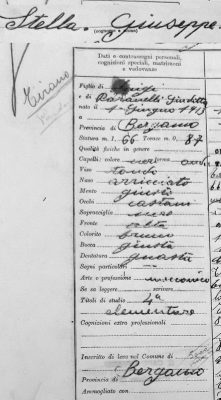 Stella Giuseppe
(cognome e nome)
Tirano
Dati e contrassegni personali,
cognizioni speciali, matrimoni
e vedovanze
Figlio di Luigi
e di Giulietta
nato il 1 Giugno 1913
a Bergamo
Provincia di Bergamo
Statura m. 1, 66 Torace m. 0, 87
Qualità fisiche in genere
Capelli: colore neri forma
Viso tondo
Naso arricciato
Mento giusto
Occhi castani
Sopracciglia nere
Fronte alta
Colorito bruno
Bocca giusta
Dentatura guasta
Segni particolari
Arte o professione meccanico
Se sa leggere scrivere
Titoli di studio 4ª
elementare
Cognizioni extra professionali
Inscritto di leva nel Comune di
Bergamo
Provincia di
Ammogliato con